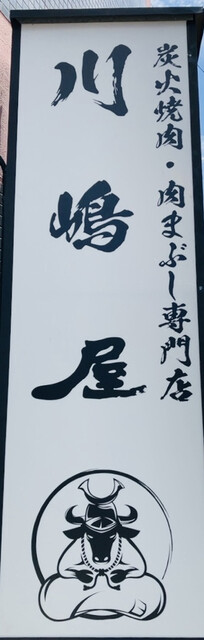 炭火焼肉・肉まぶし専門店
川嶋屋